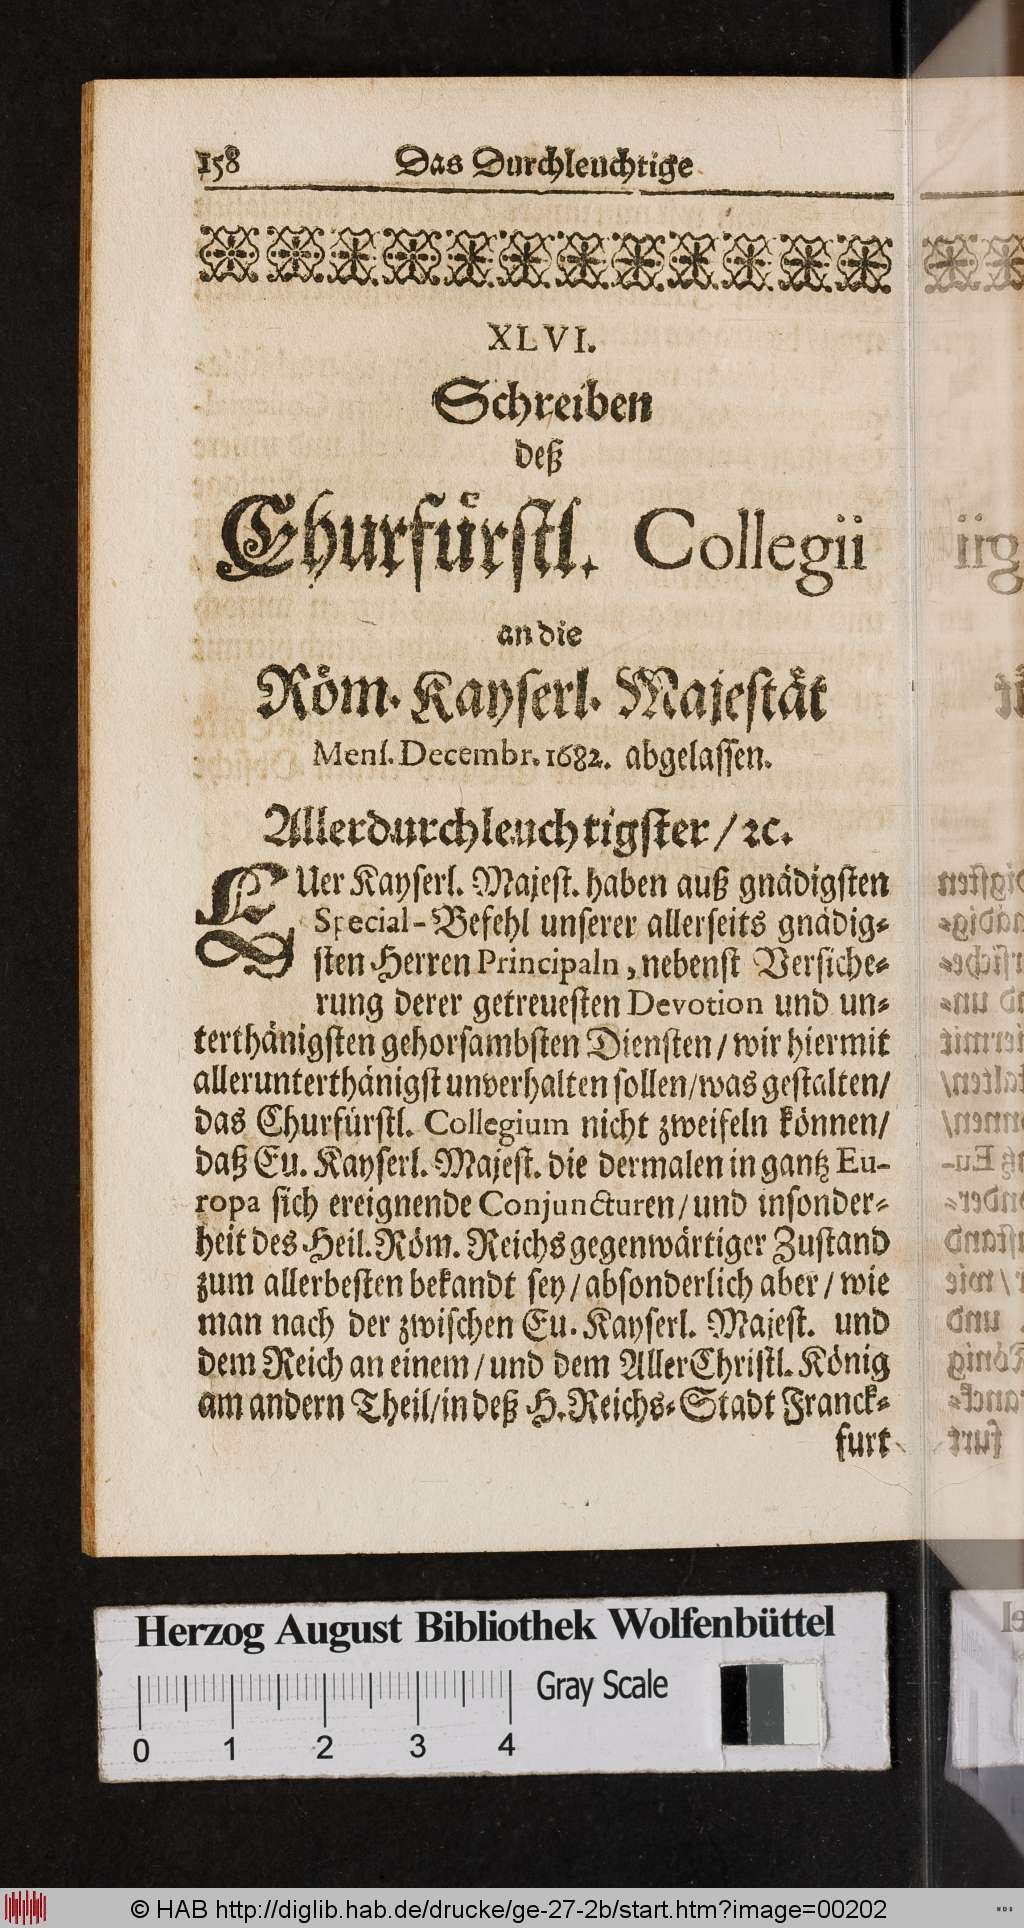 158 Das Durchleuchtige
XLVI.
Schreiben
deß
Churfürstl. Collegii
an die
Röm. Kayserl. Majestät
Mens. Decembr. 1682. abgelassen.
Allerdurchleuchtigster / ꝛc.
EUer Kayserl. Majest. haben auß gnädigsten
Special-Befehl unserer allerseits gnädig-
sten Herren Principaln, nebenst Versiche-
rung derer getreuesten Devotion und un-
terthänigsten gehorsambsten Diensten / wir hiermit
allerunterthänigst unverhalten sollen / was gestalten /
das Churfürstl. Collegium nicht zweifeln können /
daß Eu. Kayserl. Majest. die dermalen in gantz Eu-
ropa sich ereignende Conjuncturen / und insonder-
heit des Heil. Röm. Reichs gegenwärtiger Zustand
zum allerbesten bekandt sey / absonderlich aber / wie
man nach der zwischen Eu. Kayserl. Majest. und
dem Reich an einem / und dem AllerChristl. König
am andern Theil / in deß H. Reichs-Stadt Franck-
furt
Herzog August Bibliothek Wolfenbüttel
Gray Scale
0 1 2 3 4
© HAB http://diglib.hab.de/drucke/ge-27-2b/start.htm?image=00202